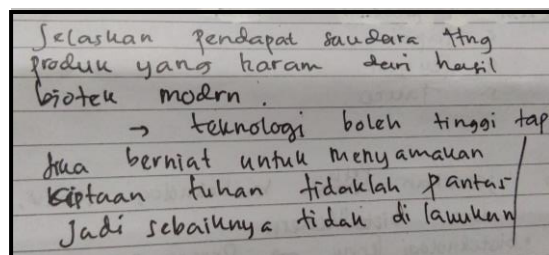 Jelaskan pendapat saudara ttng
produk yang haram dari hasil
biotek modrn.
→ teknologi boleh tinggi tap
jika berniat untuk menyamakan
ciptaan tuhan tidaklah pantas
Jadi sebaiknya tidak di lakukan